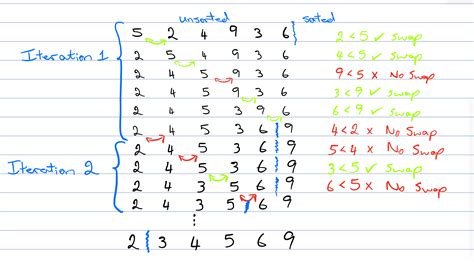 unsorted sorted
5 2 4 9 3 6 2<5 ✓ Swap
Iteration 1 2 5 4 9 3 6 4<5 ✓ Swap
2 4 5 9 3 6 9<5 × No Swap
2 4 5 9 3 6 3<9 ✓ Swap
2 4 5 3 9 6 6<9 ✓ Swap
2 4 5 3 6 9 4<2 × No Swap
2 4 5 3 6 9 5<4 × No Swap
Iteration 2 2 4 5 3 6 9 3<5 ✓ Swap
2 4 3 5 6 9 6<5 × No Swap
2 4 3 5 6 9
⋮
2 3 4 5 6 9